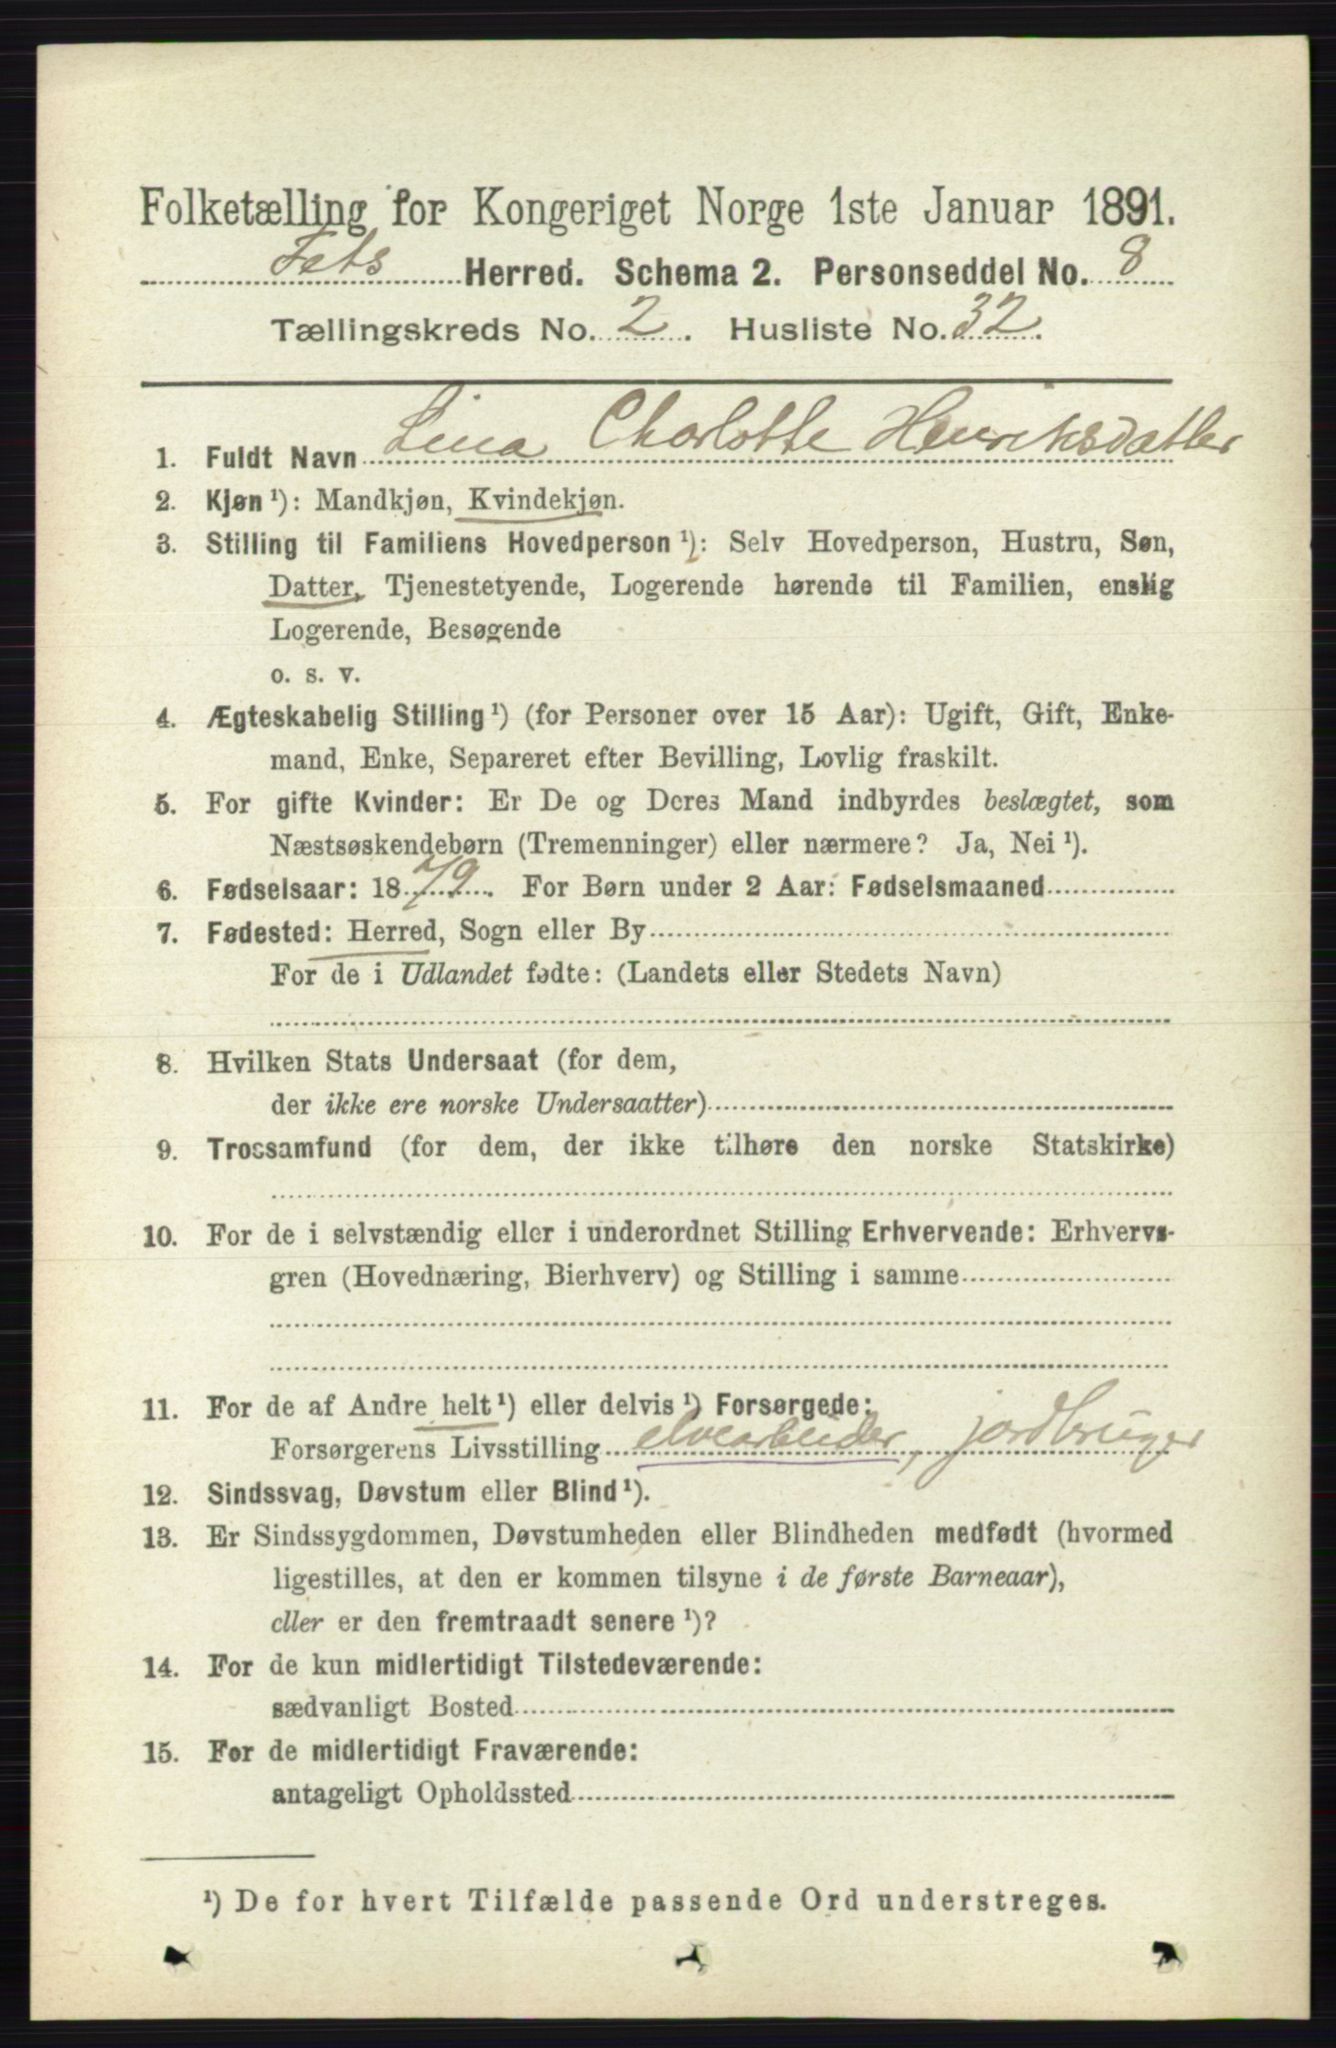 Folketælling for Kongeriget Norge 1ste Januar 1891.
Fets Herred. Schema 2. Personseddel No. 8
Tællingskreds No. 2. Husliste No. 32.
1. Fuldt Navn Lina Charlotte Henriksdatter
2. Kjøn ¹): Mandkjøn, Kvindekjøn.
3. Stilling til Familiens Hovedperson ¹): Selv Hovedperson, Hustru, Søn,
Datter, Tjenestetyende, Logerende hørende til Familien, enslig
Logerende, Besøgende
o. s. v.
4. Ægteskabelig Stilling ¹) (for Personer over 15 Aar): Ugift, Gift, Enke-
mand, Enke, Separeret efter Bevilling, Lovlig fraskilt.
5. For gifte Kvinder: Er De og Deres Mand indbyrdes beslægtet, som
Næstsøskendebørn (Tremenninger) eller nærmere? Ja, Nei ¹).
6. Fødselsaar: 1879. For Børn under 2 Aar: Fødselsmaaned
7. Fødested: Herred, Sogn eller By
For de i Udlandet fødte: (Landets eller Stedets Navn)
8. Hvilken Stats Undersaat (for dem,
der ikke ere norske Undersaatter)
9. Trossamfund (for dem, der ikke tilhøre den norske Statskirke)
10. For de i selvstændig eller i underordnet Stilling Erhvervende: Erhvervs-
gren (Hovednæring, Bierhverv) og Stilling i samme
11. For de af Andre helt ¹) eller delvis ¹) Forsørgede:
Forsørgerens Livsstilling elvearbeider, jordbruger
12. Sindssvag, Døvstum eller Blind ¹).
13. Er Sindssygdommen, Døvstumheden eller Blindheden medfødt (hvormed
ligestilles, at den er kommen tilsyne i de første Barneaar),
eller er den fremtraadt senere ¹)?
14. For de kun midlertidigt Tilstedeværende:
sædvanligt Bosted
15. For de midlertidigt Fraværende:
antageligt Opholdssted
¹) De for hvert Tilfælde passende Ord understreges.